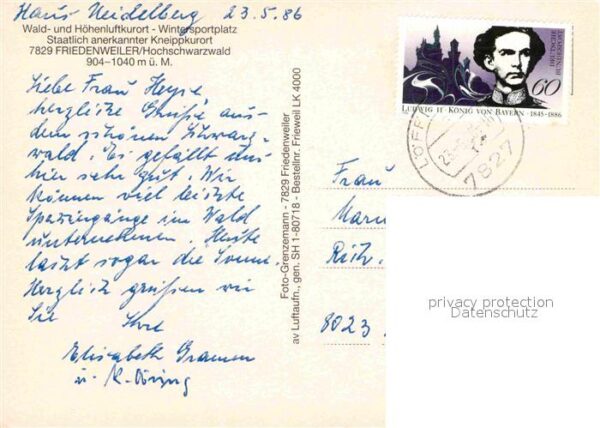 Haus Heidelberg 23.5.86
Wald- und Höhenluftkurort - Wintersportplatz
Staatlich anerkannter Kneippkurort
7829 FRIEDENWEILER/Hochschwarzwald
904–1040 m ü. M.
Liebe Frau Heyse
herzliche Grüße aus
dem schönen Schwarz-
wald. Es gefällt uns
hier sehr gut. Wir
können viel leichte
Spaziergänge im Wald
unternehmen. Heute
lacht sogar die Sonne.
Herzlich grüßen wir
Sie Ihre
Elisabeth
u. K. Döring
Foto-Grenzemann - 7829 Friedenweiler
av Luftaufn., gen. SH 1-80718 - Bestellnr. Frieweil LK 4000
DEUTSCHE BUNDESPOST
60
LUDWIG II · KÖNIG VON BAYERN · 1845-1886
LÖFF
7827
Frau
8023
privacy protection
Datenschutz